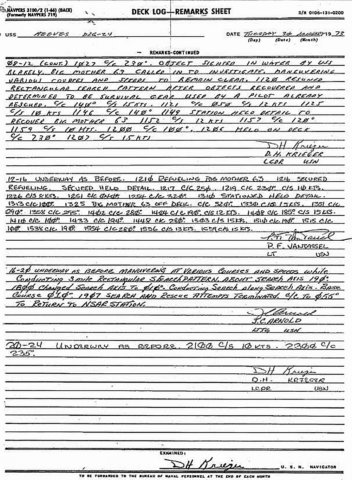 NAVPERS 3100/2 (1-66) (BACK)
(Formerly NAVPERS 719)
DECK LOG—REMARKS SHEET
S/N 0106-131-0200
USS REEVES DLG-24 DATE TUESDAY 30 JANUARY 1973
(Day) (Date) (Month)
REMARKS-CONTINUED
08-12 (CONT) 1027 C/C 230°. OBJECT SIGHTED IN WATER BY US
ALREADY. BIG MOTHER 63 CALLED IN TO INVESTIGATE. MANEUVERING
VARIOUS COURSES AND SPEEDS TO REMAIN CLEAR. 1120 RESUMED
RECTANGULAR SEARCH PATTERN AFTER OBJECTS RECOVERED AND
DETERMINED TO BE SURVIVAL GEAR USED BY A PILOT ALREADY
RESCUED. C/C 140° C/S 15 KTS. 1121 C/C 050° C/S 12 KTS 1125
C/S 10 KTS 1146 C/C 140° 1149 STATION HELO DETAIL TO
RECOVER BIG MOTHER 63 1152 C/S 12 KTS 1157 C/C 120°
1159 C/S 10 KTS. 1200 C/C 100°. 1205 HELO ON DECK
C/C 230° 1207 C/S 15 KTS
D H Krieger
D.H. KRIEGER
LCDR USN
12-16 UNDERWAY AS BEFORE. 1210 REFUELING BIG MOTHER 63 1216 SECURED
REFUELING. SECURED HELO DETAIL. 1217 C/C 256 1219 C/C 230° C/S 10 KTS.
1226 C/S 8 KTS. 1251 C/C 040° 1256 C/C 320° 1310 STATIONED HELO DETAIL.
1313 C/C 100°. 1325 BIG MOTHER 63 OFF DECK. C/C 320°. 1330 C/S 15 KTS. 1351 C/C
P. F. VANDASEL
LT USN
16-20 UNDERWAY AS BEFORE MANEUVERING AT VARIOUS COURSES AND SPEEDS WHILE
CONDUCTING 3 MILE RECTANGULAR SEARCH PATTERN ABOUT SEARCH AXIS 190°
1800 CHANGED SEARCH AXIS TO 010°. CONDUCTING SEARCH ALONG SEARCH AXIS. BASE
COURSE 010°. 1907 SEARCH AND RESCUE ATTEMPTS TERMINATED. C/C TO 055°
TO RETURN TO NSAR STATION.
J.C. ARNOLD
LTJG USN
20-24 UNDERWAY AS BEFORE. 2100 C/S 10 KTS. 2300 C/C
235.
D H Krieger
D.H. KRIEGER
LCDR USN
EXAMINED:
D H Krieger U. S. N. NAVIGATOR
TO BE FORWARDED TO THE BUREAU OF NAVAL PERSONNEL AT THE END OF EACH MONTH